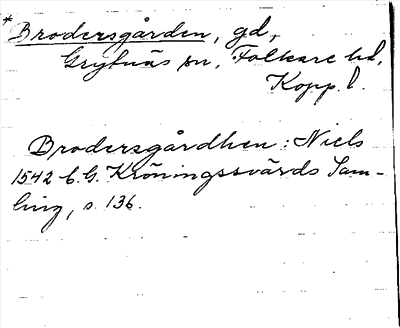 * Brodersgården, gd,
Grytnäs sn, Folkare hd,
Kopp. l.
Brodersgårdhen: Niels
1542 C. G. Kröningssvärds Sam-
ling, s. 136.